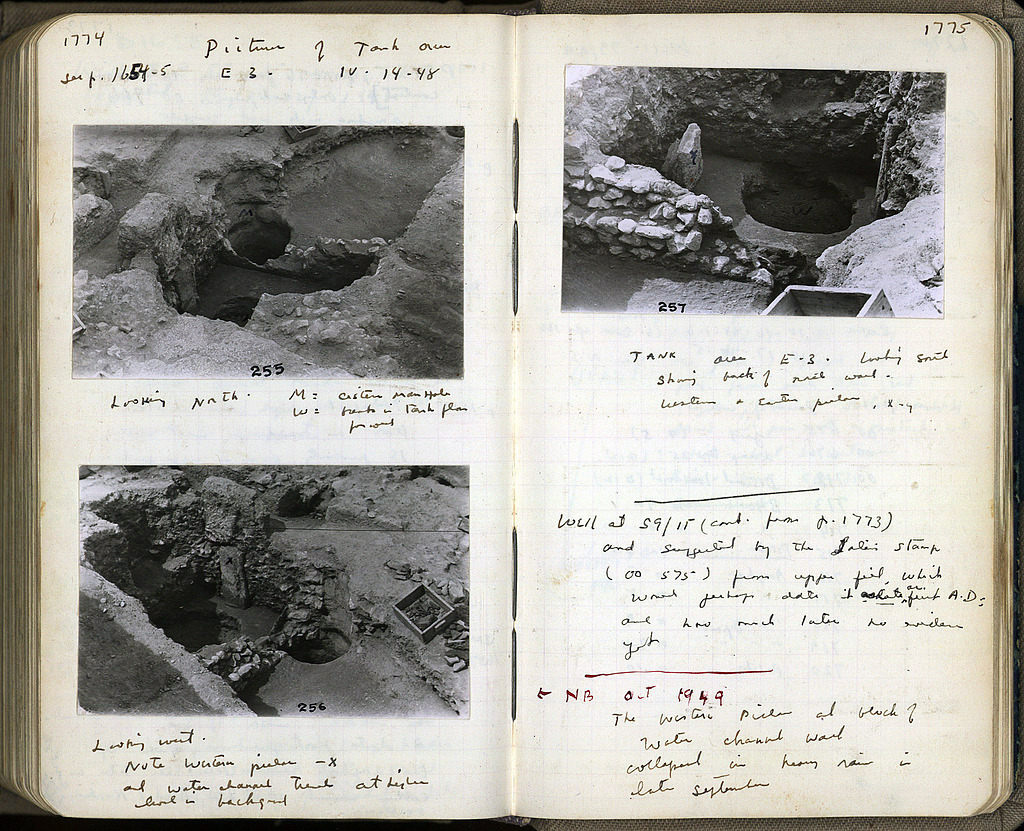 1774
Picture of Tank area
see p. 1654-5 E 3. IV. 14-48
M
255
Looking North. M = cistern manhole
W = in Tank floor
256
Looking west.
Note Western pillar -X
and water channel at higher
level in background
1775
W
257
TANK area E-3. Looking South
Showing back of wall.
Western & Eastern pillar, X-Y
Well at S9/15 (cont. from p. 1773)
and suggested by the stamp
(OO 575) from upper fill, which
would perhaps date it first A.D.
and how much later no evidence
yet
NB OCT 1949
The western pillar at block of
Water channel wall
collapsed in heavy rain in
late September